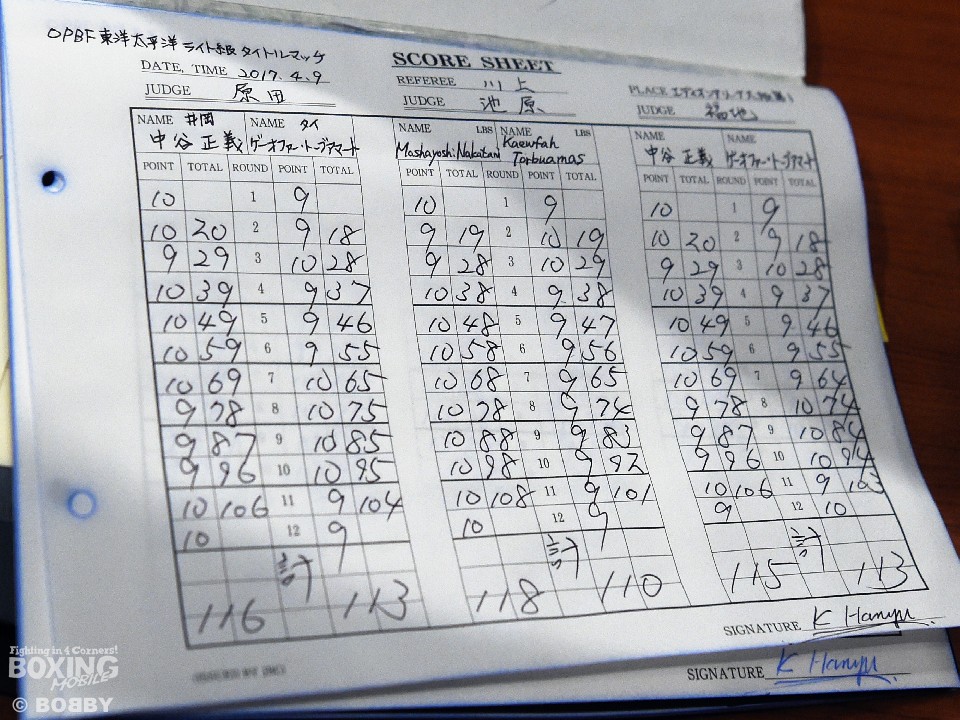 OPBF 東洋太平洋 ライト級 タイトルマッチ
SCORE SHEET
DATE, TIME 2017.4.9
REFEREE 川上
JUDGE 原田
JUDGE 池原
JUDGE 福地
PLACE
NAME 井岡 NAME タイ
NAME LBS NAME LBS
NAME NAME
中谷 正義 ゲーオファー・トーブアマート
Mashayoshi Nakatani Kaewfah Torbuamas
中谷 正義 ゲーオファー・トーブアマート
POINT TOTAL ROUND POINT TOTAL POINT TOTAL ROUND POINT TOTAL POINT TOTAL ROUND POINT TOTAL
10 1 9 10 1 9 10 1 9
10 20 2 9 18 9 19 2 10 19 10 20 2 9 18
9 29 3 10 28 9 28 3 10 29 9 29 3 10 28
10 39 4 9 37 10 38 4 9 38 10 39 4 9 37
10 49 5 9 46 10 48 5 9 47 10 49 5 9 46
10 59 6 9 55 10 58 6 9 56 10 59 6 9 55
10 69 7 10 65 10 68 7 9 65 10 69 7 9 64
9 78 8 10 75 10 78 8 9 74 9 78 8 10 74
9 87 9 10 85 10 88 9 9 83 9 87 9 10 84
9 96 10 10 95 10 98 10 9 92 9 96 10 10 94
10 106 11 9 104 10 108 11 9 101 10 106 11 9 103
10 12 9 10 12 9 9 12 10
計 計 計
116 113 118 110 115 113
SIGNATURE K Hanyu
SIGNATURE K Hanyu
Fighting in 4 Corners!
BOXING
MOBILE
© BOBBY